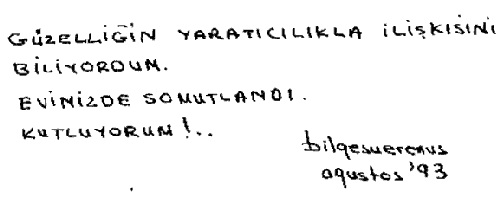 GÜZELLİĞİN YARATICILIKLA İLİŞKİSİNİ
BİLİYORDUM.
EVİNİZDE SOMUTLANDI.
KUTLUYORUM!..
bilgesuerenus
agustos '93